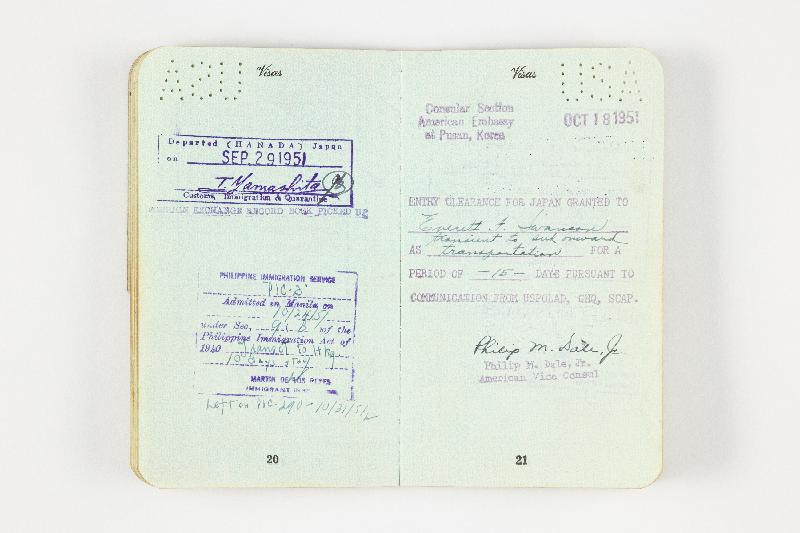 Visas
Departed (HANADA) Japan
on SEP 29 1951
T. Yamashita
Customs, Immigration & Quarantine
EXCHANGE RECORD BOOK PICKED UP
PHILIPPINE IMMIGRATION SERVICE
Admitted in Manila on
under Sec. of the
Philippine Immigration Act of
1940
MARTIN DE LOS REYES
IMMIGRANT
Left on
20
Visas
USA
Consular Section
American Embassy
at Pusan, Korea
OCT 18 1951
ENTRY CLEARANCE FOR JAPAN GRANTED TO
Everett F. Swanson
transient to onward
AS transportation FOR A
PERIOD OF -15- DAYS PURSUANT TO
COMMUNICATION FROM USPOLAD, GHQ, SCAP.
Philip M. Dale, Jr
Philip M. Dale, Jr.
American Vice Consul
21